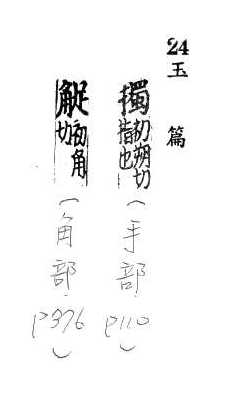 24 玉篇
擉 初朔切 指也 (手部, p110)
䟫 初角切 (角部, p376)